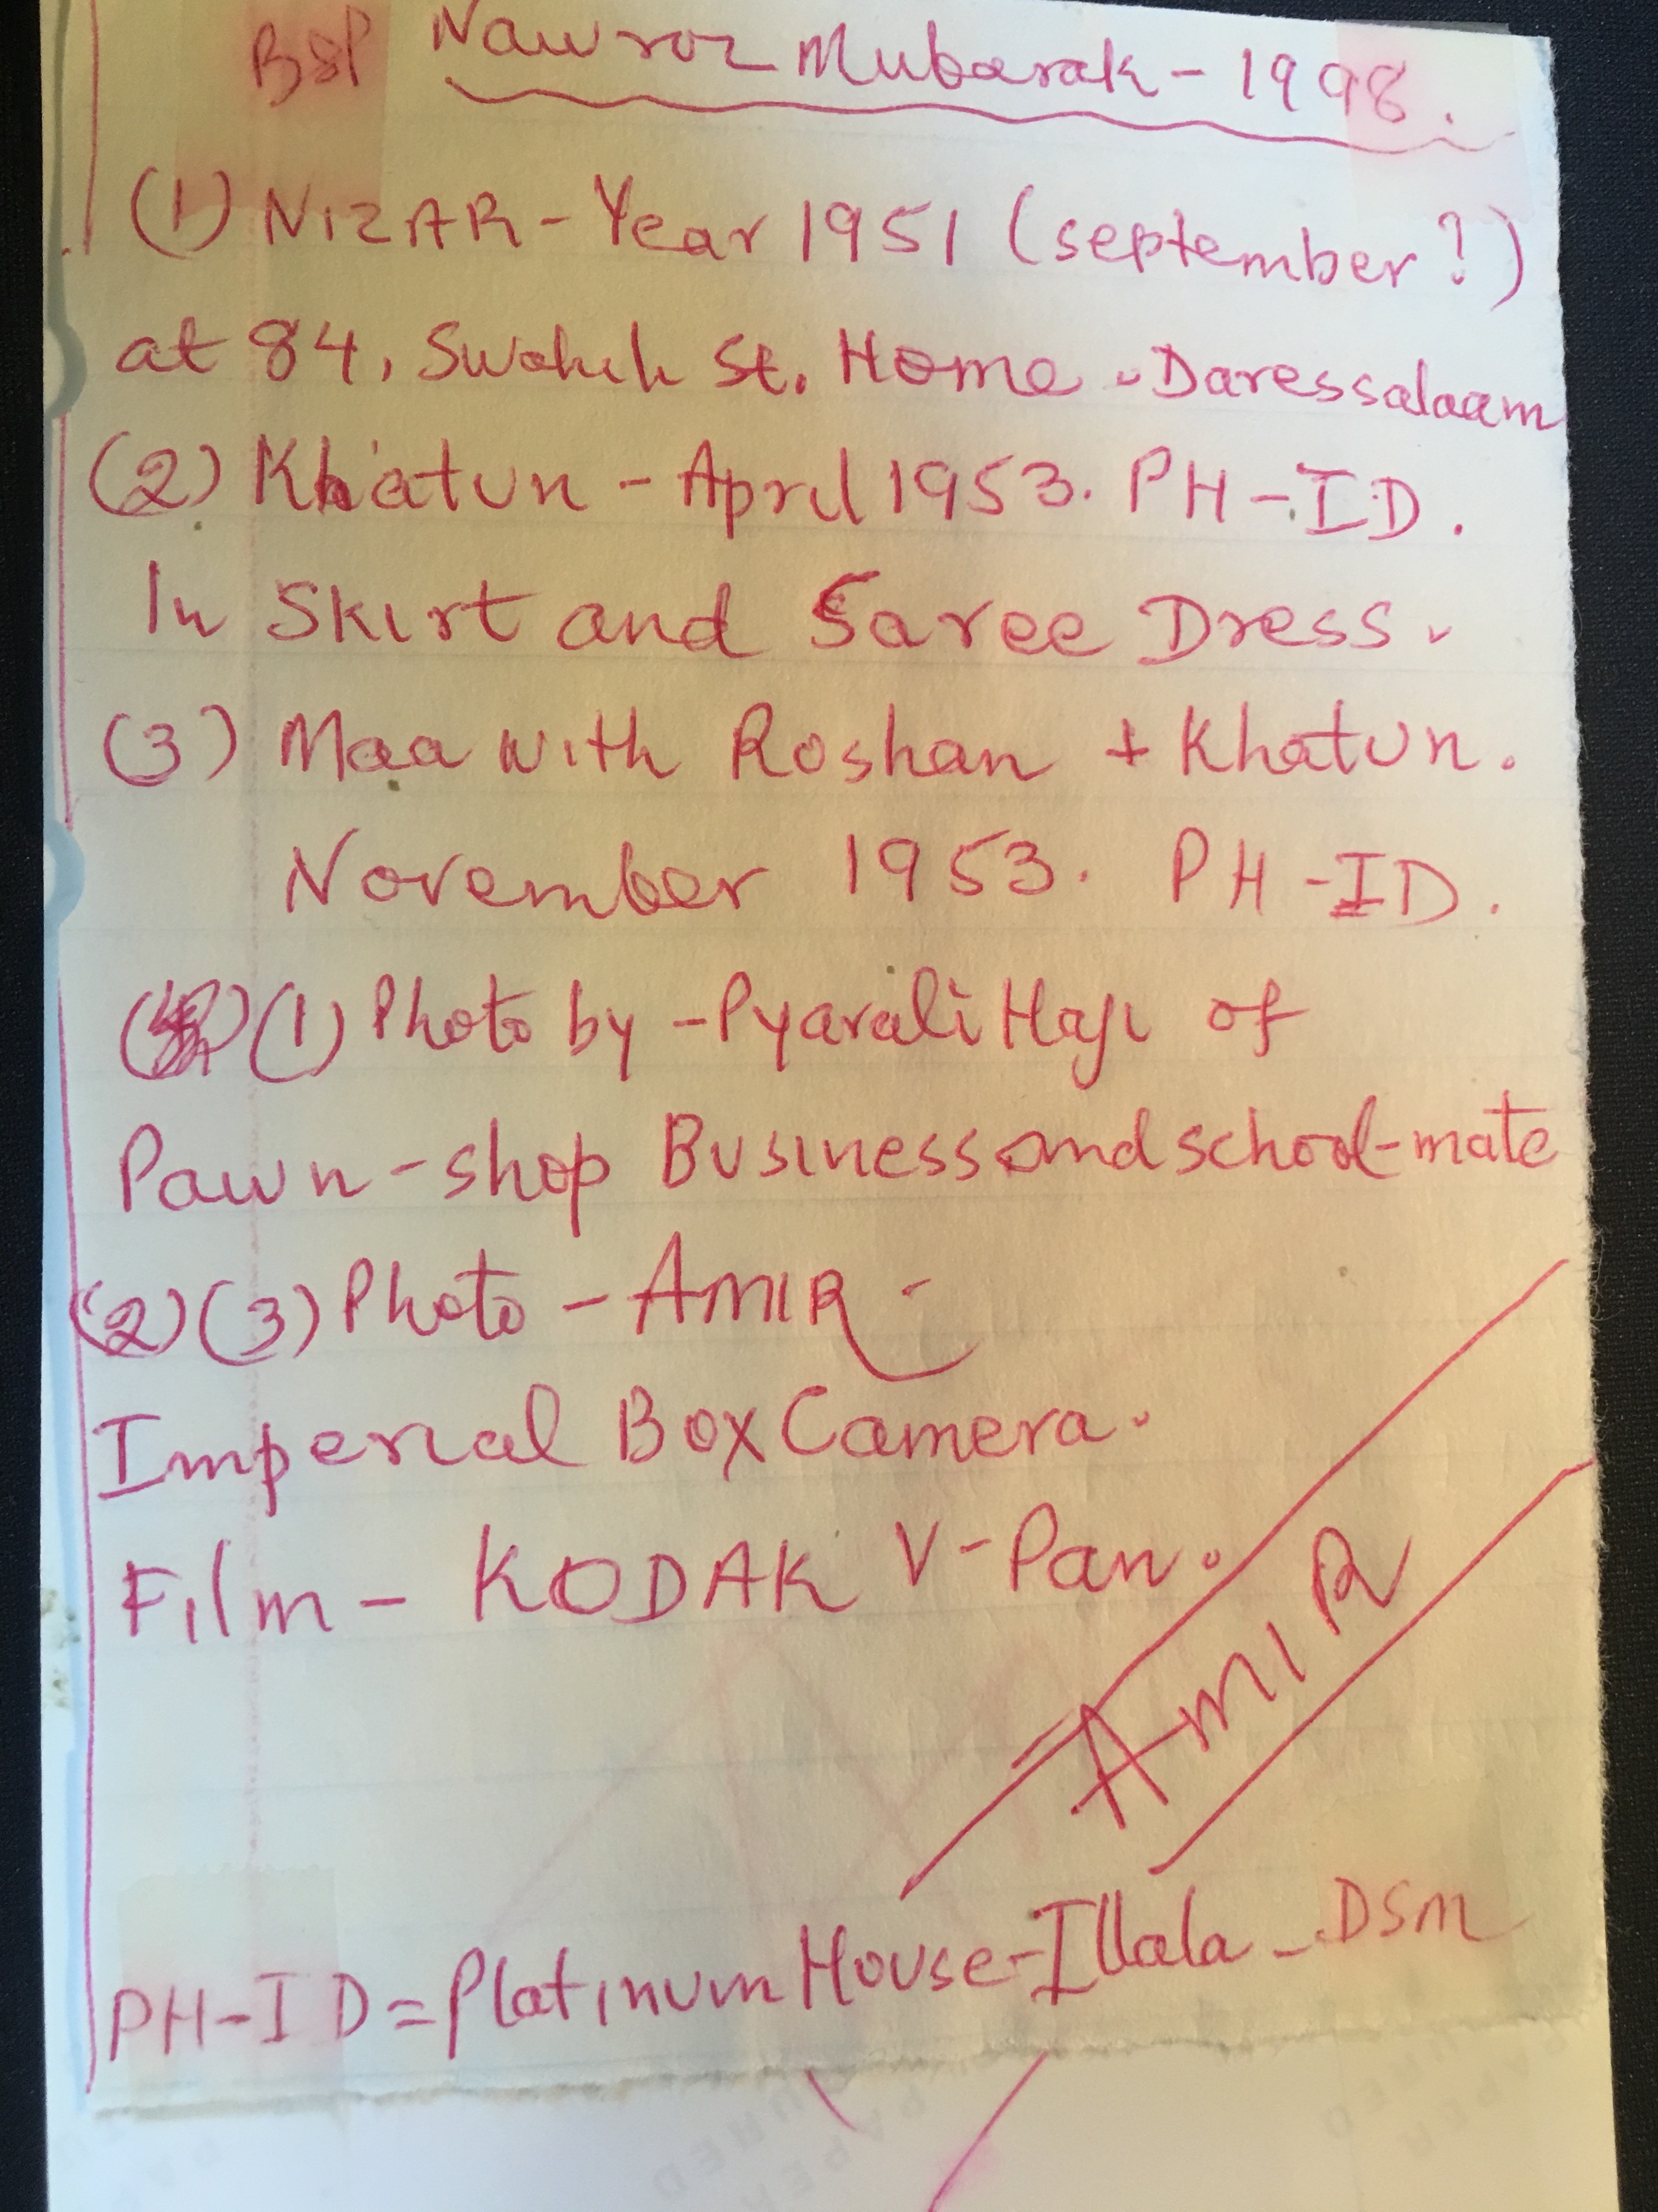 BSP Nawroz Mubarak - 1998.
(1) NIZAR - Year 1951 (september?)
at 84, Swahili St. Home - Daressalaam
(2) Khatun - April 1953. PH-ID.
In Skirt and Saree Dress.
(3) Maa with Roshan + Khatun.
November 1953. PH-ID.
(1) Photo by - Pyarali Haji of
Pawn-shop Business and school-mate
(2)(3) Photo - AMIR -
Imperial Box Camera.
Film - KODAK V-Pan.
AMIR
PH-ID = Platinum House - Illala - DSM